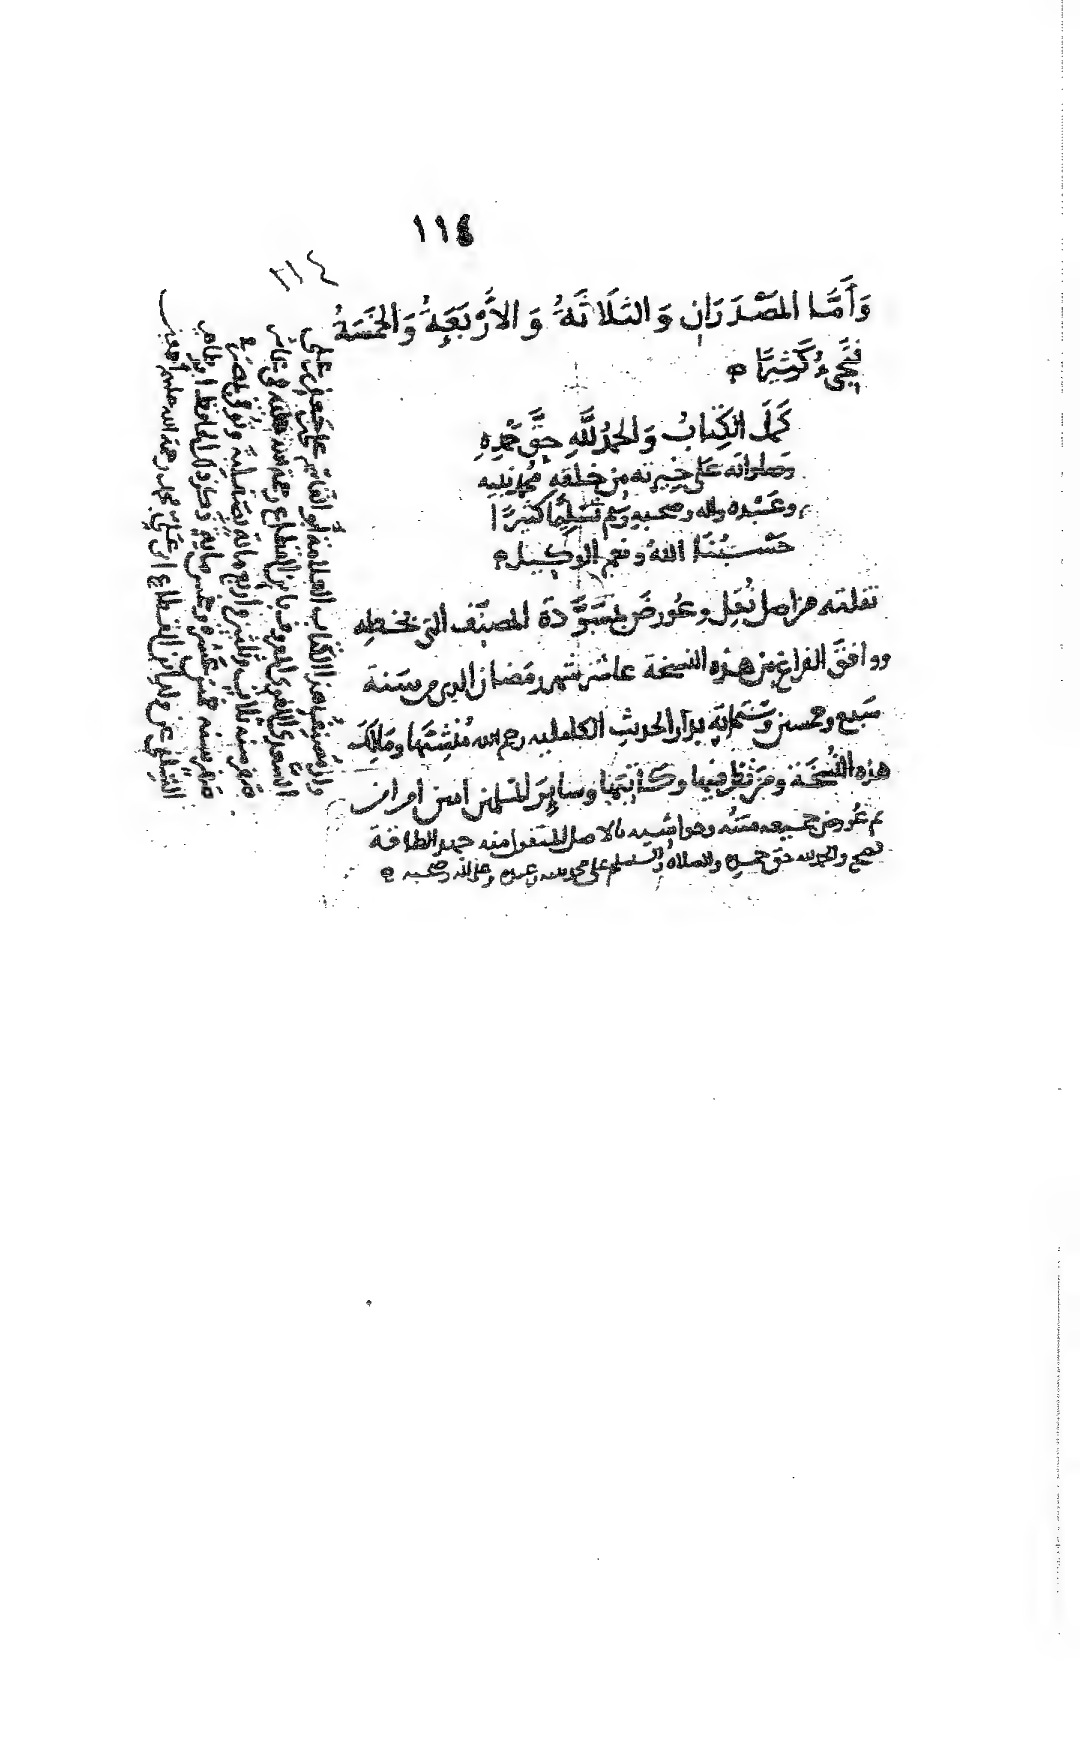 ١١٤
١١٤
وَأَمَّا المَصْدَرَانِ وَالثَلَاثَةُ وَالأَرْبَعَةُ وَالخَمْسَةُ
فَيَجِيءُ كَثِيرًا ه
كَمَلَ الكِتَابُ وَالحَمْدُ لِلَّهِ حَقَّ حَمْدِهِ
وصلواته عَلَى خِيرته من خلقهِ مُحمد نبيه
وعَبْدِه واله وصحبه وسلم تَسْلِيمًا كثيرًا
حَسْبُنَا اللهُ ونعم الوكيل ه
نقلته من اصل نُقِل وعُورضَ بمُسَوَّدَة المصنِّف التي بخطه
ووافَقَ الفراغ من هذه النسخة عاشر شهر رمضان سنة
سَبع وخمسين وستمائة بدار الحديث الكاملية رحم الله مُنْشِئَها ومَالِكَ
هذه النُسْخَة ومَن نظر فيها وكَاتِبَها وسايرَ المسلمين امين امين
ثم عُورض جميعه متنُه وحواشيه بالاصل المنقول منه جهد الطاقة
فصح والحمد لله حق حمده والصلاةُ والسلام على محمد نبيه وعبده وعلى اله وصحبه ه
هذا الكتاب العلامة أبو القاسم علي بن جعفر بن علي
السعدي اللغوي المعروف بابن القطاع رحمه الله
صفر سنة ثلاث وثلثين واربع مائة بصقلية وتوفي بمصر في
صفر سنة خمس عشرة وخمس مائة وذكر الحافظ ابو طاهر
السِّلفي عن ابن القطاع